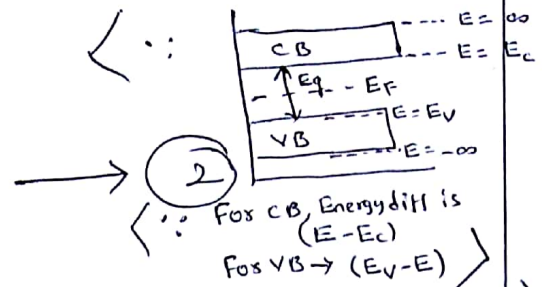 ∵ E = ∞
CB E = Ec
Eg EF
E = Ev
VB E = -∞
2
∵ For CB, Energy diff is
(E - Ec)
For VB → (Ev - E)